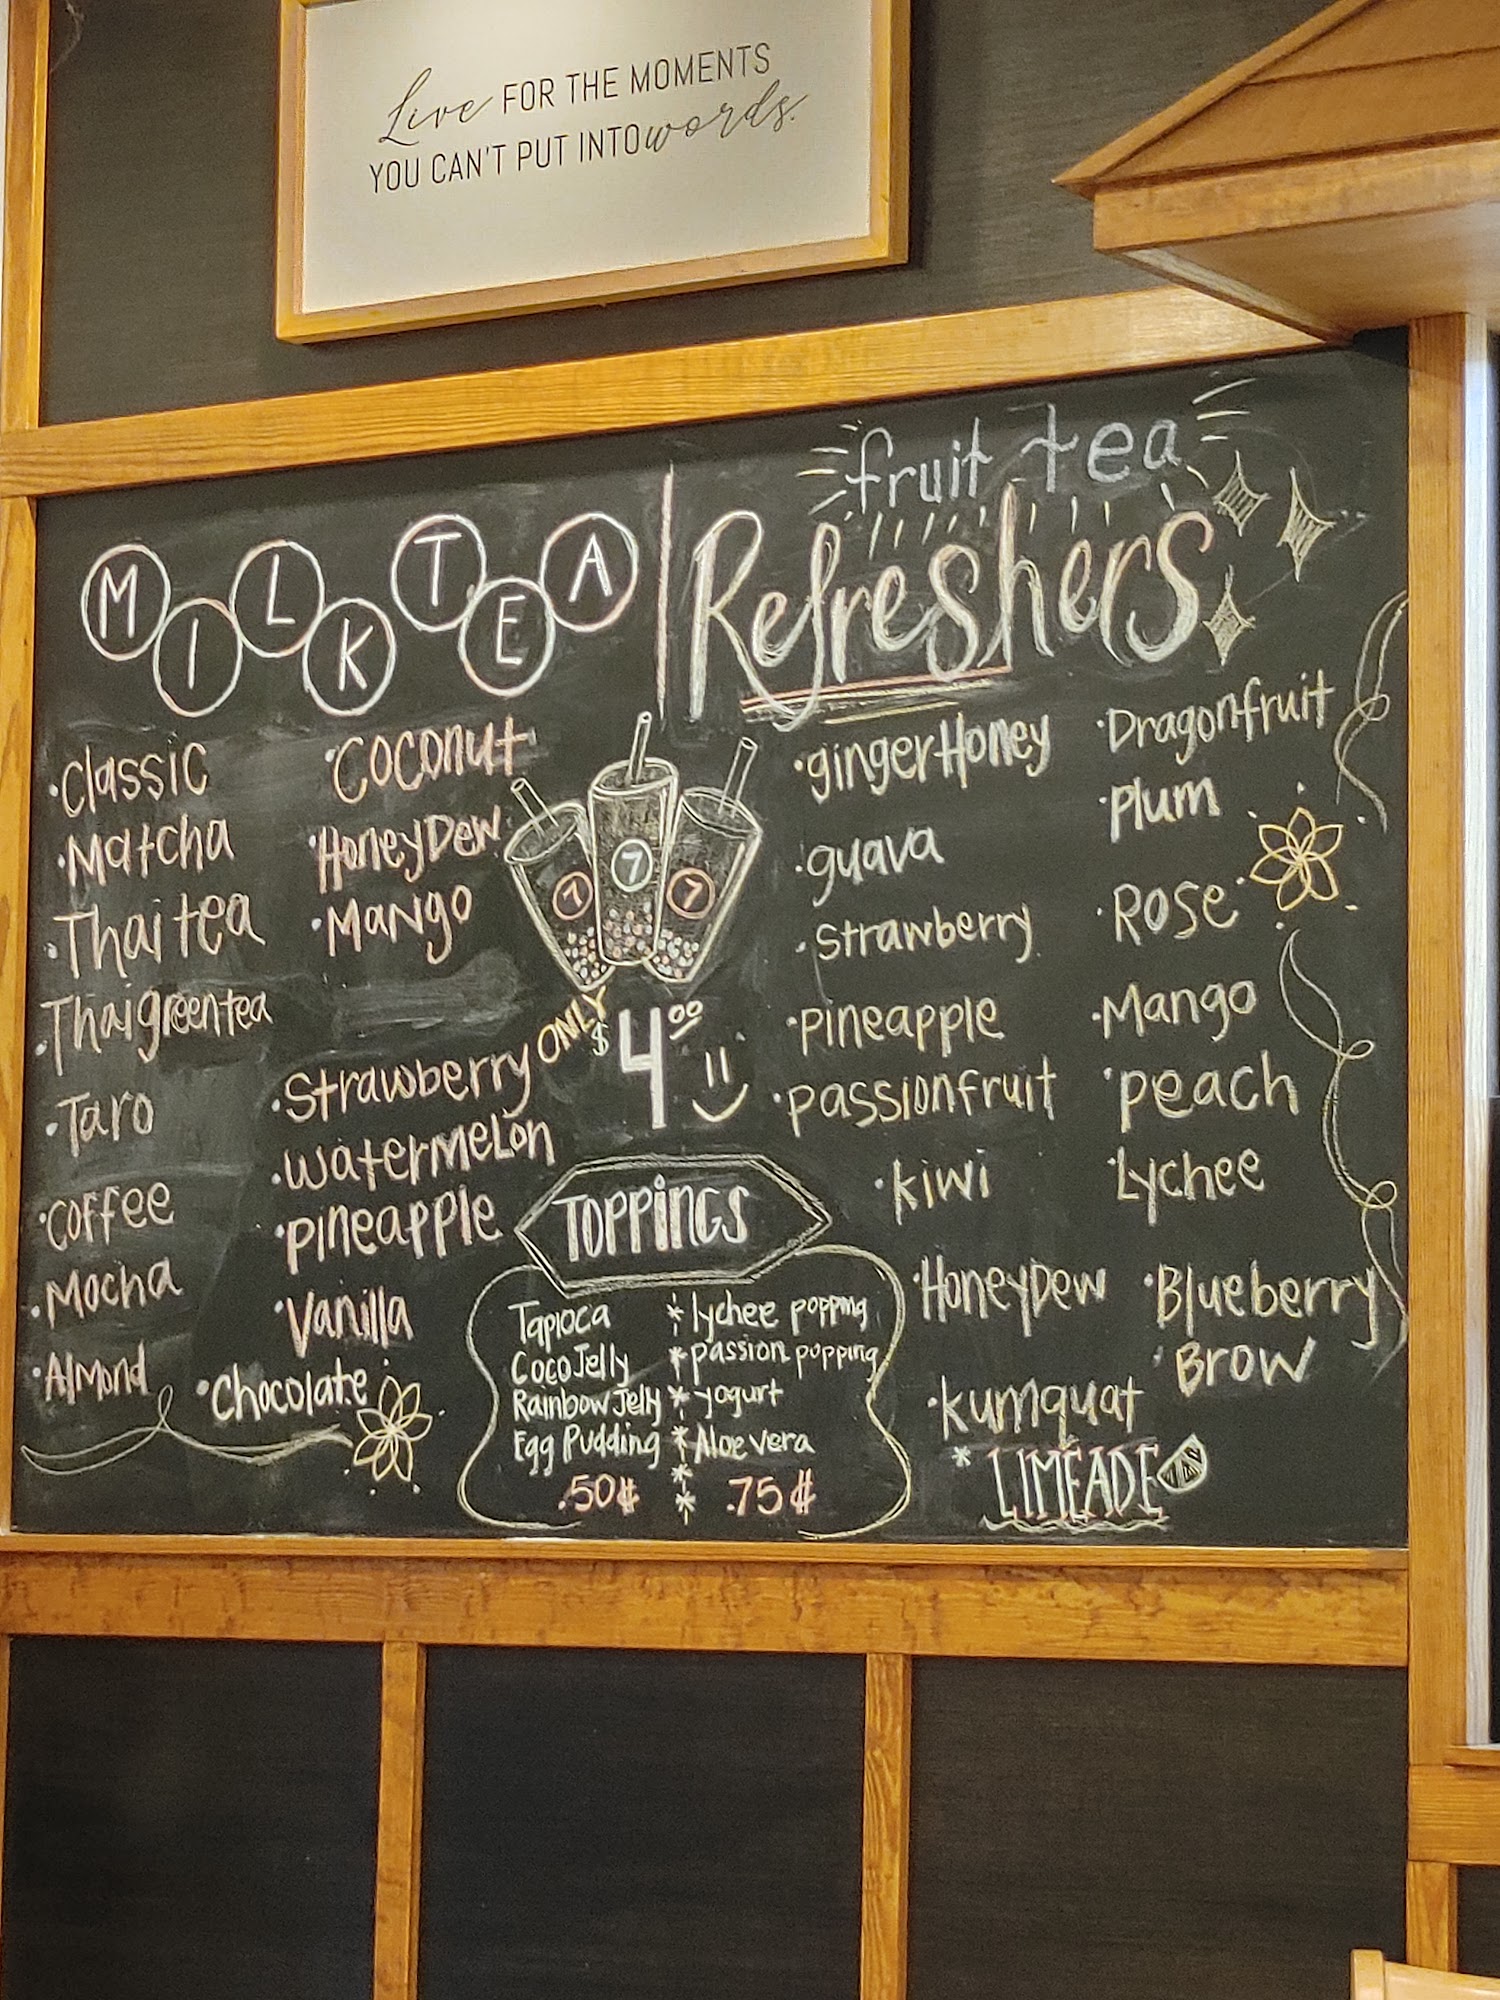 Live FOR THE MOMENTS
YOU CAN'T PUT INTO words.
MILK TEA
·Classic
·Matcha
·Thai tea
·Thai green tea
·Taro
·Coffee
·Mocha
·Almond
·Coconut
·HoneyDew
·Mango
·Strawberry
·Watermelon
·Pineapple
·Vanilla
·Chocolate
7 7 7
ONLY
$4.00
TOPPINGS
Tapioca * lychee popping
Coco Jelly * passion popping
Rainbow Jelly * yogurt
Egg Pudding * Aloe vera
.50¢ * .75¢
fruit tea
Refreshers
·ginger Honey
·guava
·Strawberry
·Pineapple
·passionfruit
·kiwi
·HoneyDew
·kumquat
* LIMEADE
·Dragonfruit
·Plum
·Rose
·Mango
·peach
·Lychee
·Blueberry
·Brow